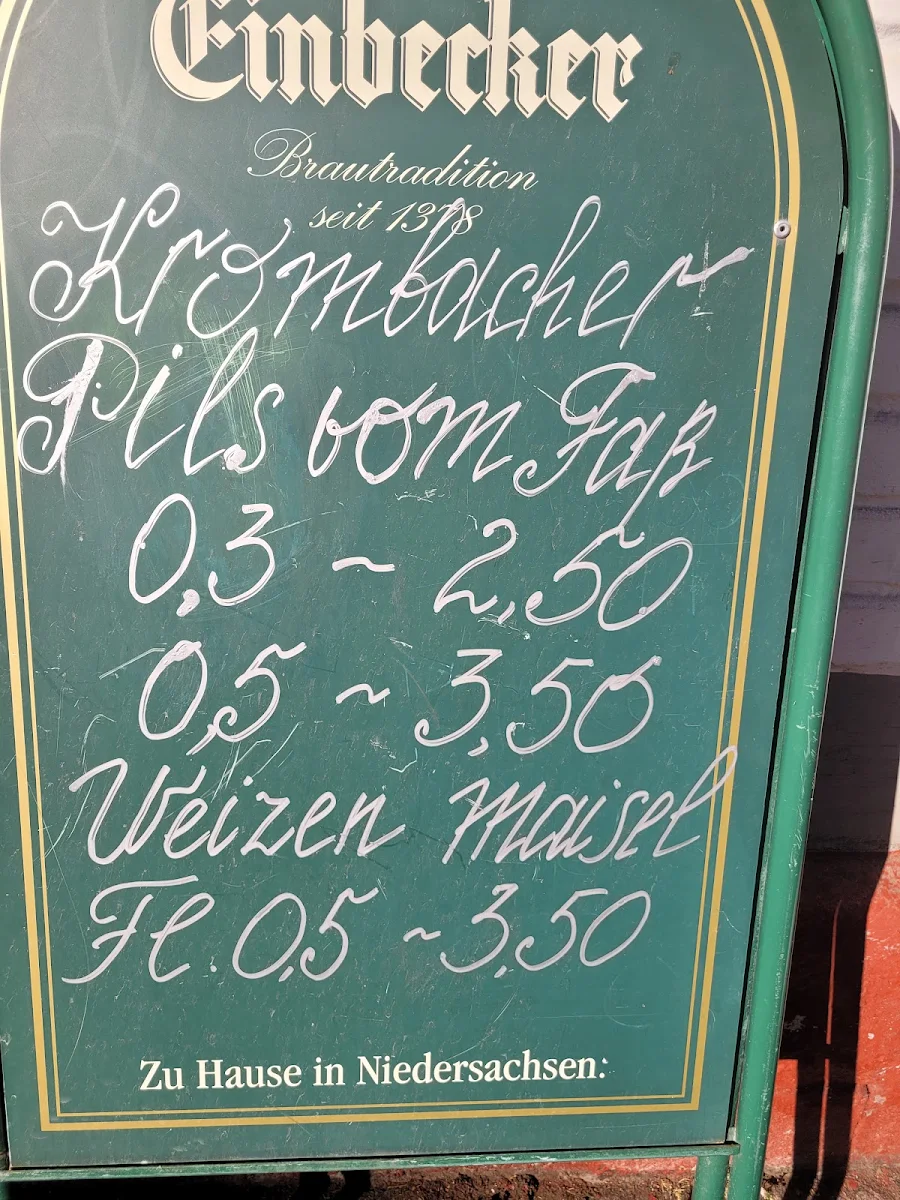 Einbecker
Brautradition
seit 1378
Krombacher
Pils vom Faß
0,3 ~ 2,50
0,5 ~ 3,50
Weizen Maisel
Fl. 0,5 ~ 3,50
Zu Hause in Niedersachsen: